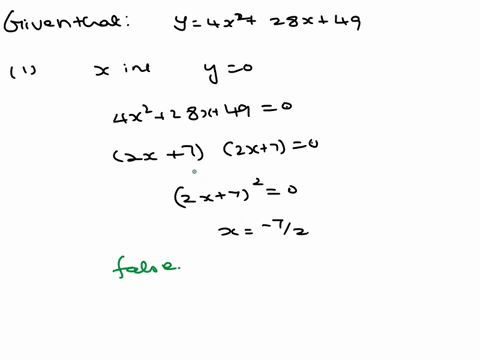 Given that: y = 4x² + 28x + 49
(1) x int y = 0
4x² + 28x + 49 = 0
(2x + 7) (2x + 7) = 0
(2x + 7)² = 0
x = -7/2
false.